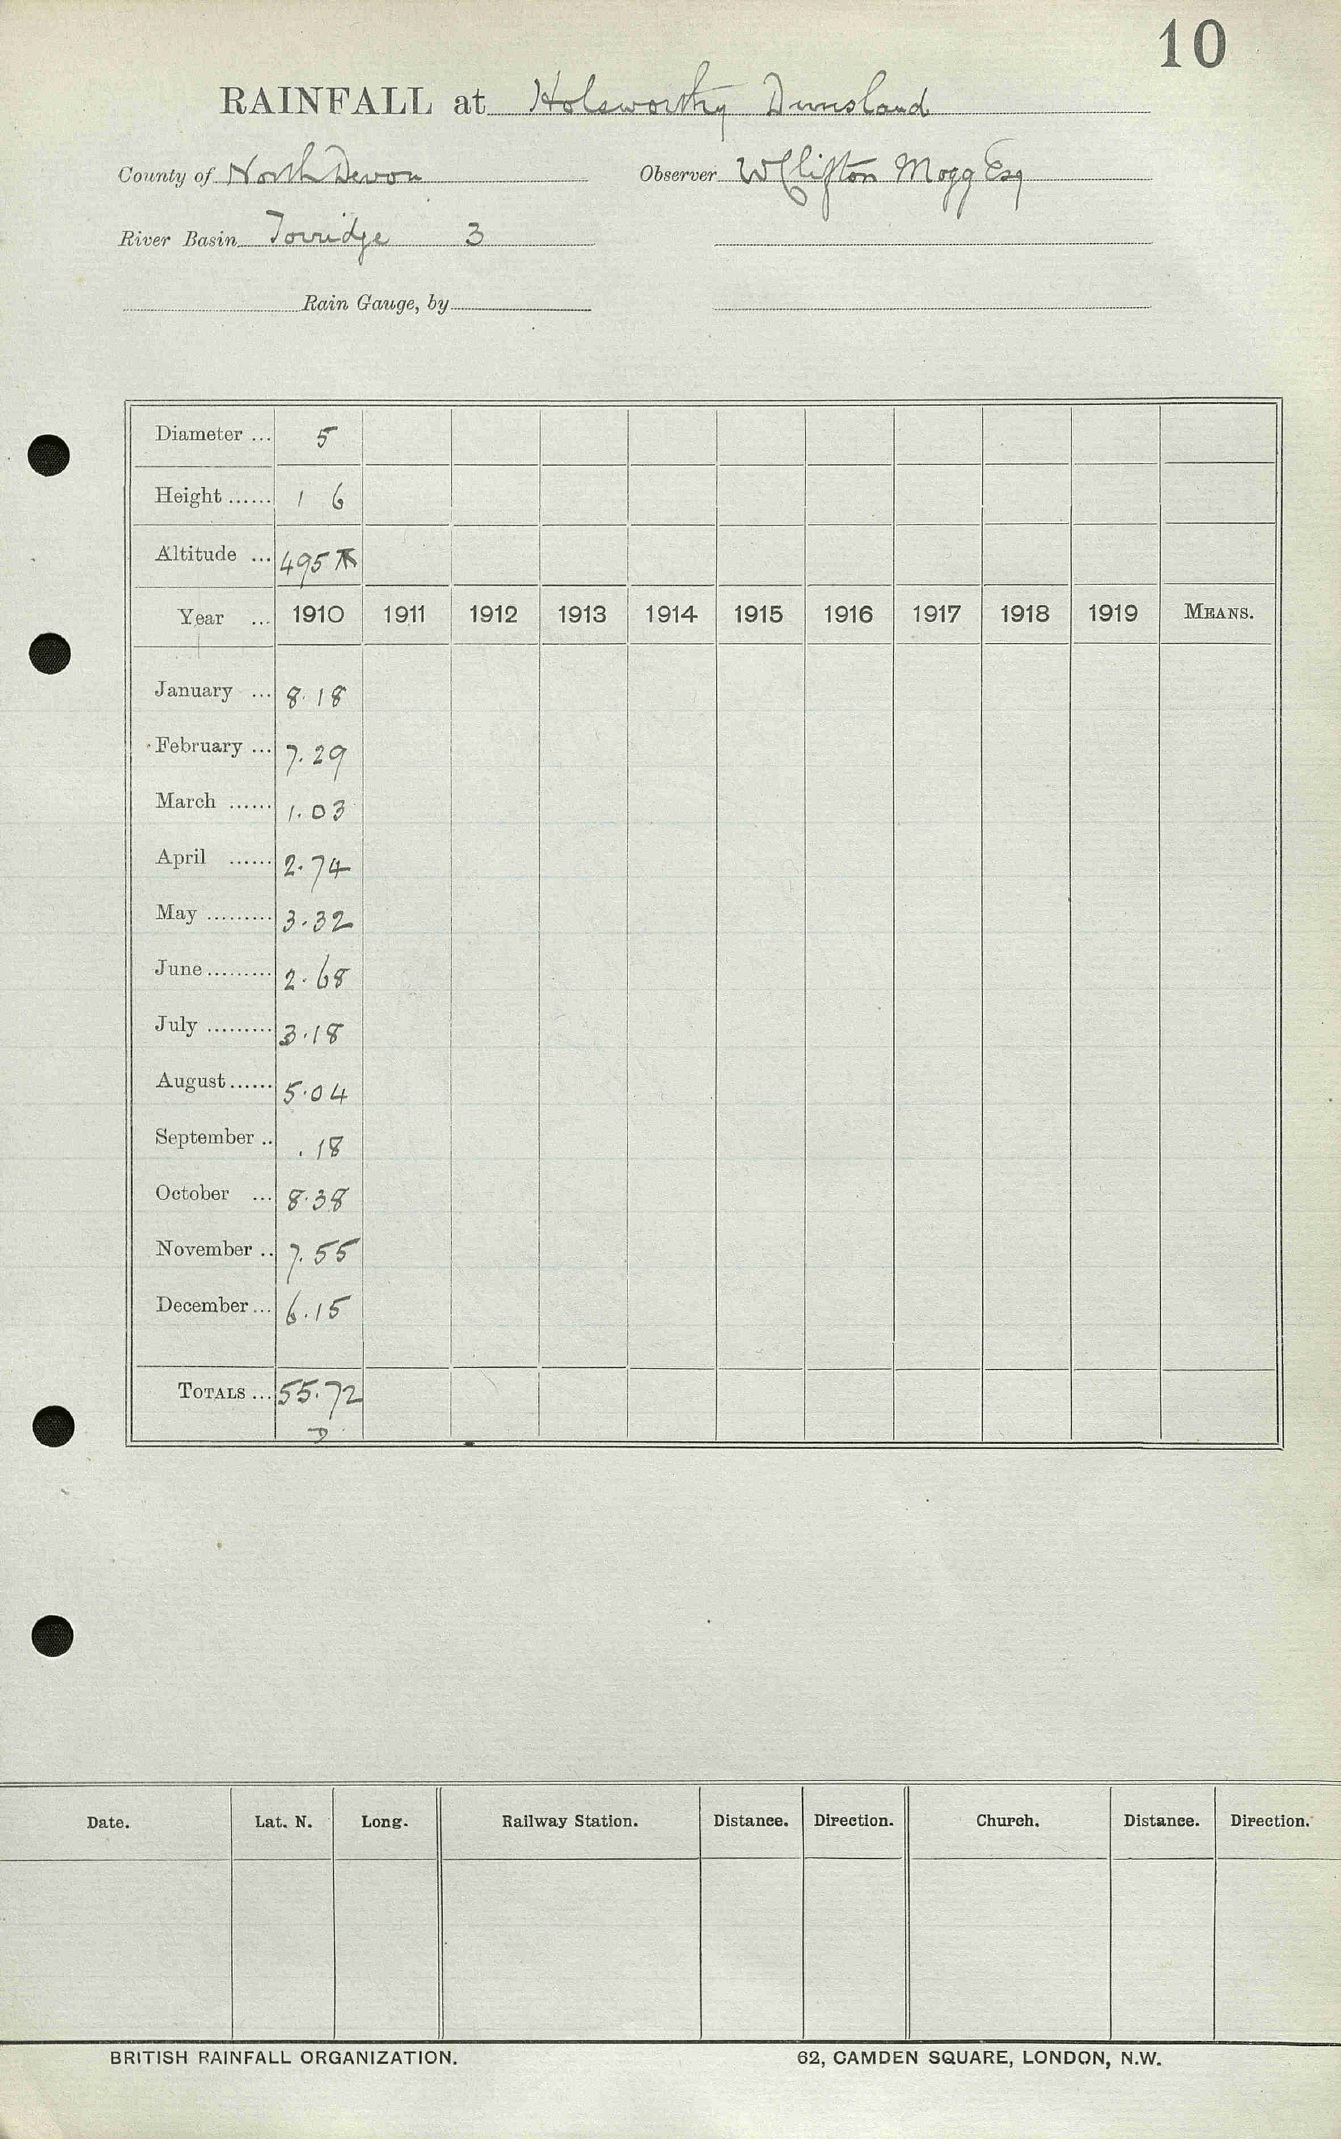 10
RAINFALL at Holsworthy Dunsland
County of North Devon Observer W Clifton Mogg Esq
River Basin Torridge 3
Rain Gauge, by
Diameter ... 5
Height ...... 1 6
Altitude ... 495
Year ... 1910 1911 1912 1913 1914 1915 1916 1917 1918 1919 MEANS.
January ... 8.18
February ... 7.29
March ...... 1.03
April ...... 2.74
May ......... 3.32
June ......... 2.68
July ......... 3.18
August ...... 5.04
September .. .18
October ... 8.38
November .. 7.55
December ... 6.15
TOTALS ... 55.72
D
Date. Lat. N. Long. Railway Station. Distance. Direction. Church. Distance. Direction.
BRITISH RAINFALL ORGANIZATION. 62, CAMDEN SQUARE, LONDON, N.W.